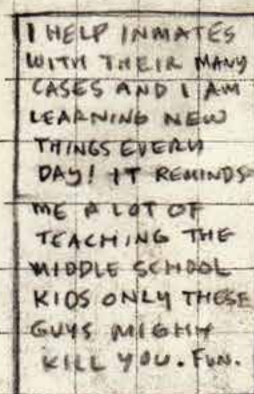 I HELP INMATES
WITH THEIR MANY
CASES AND I AM
LEARNING NEW
THINGS EVERY
DAY! IT REMINDS
ME A LOT OF
TEACHING THE
MIDDLE SCHOOL
KIDS ONLY THESE
GUYS MIGHT
KILL YOU. FUN.